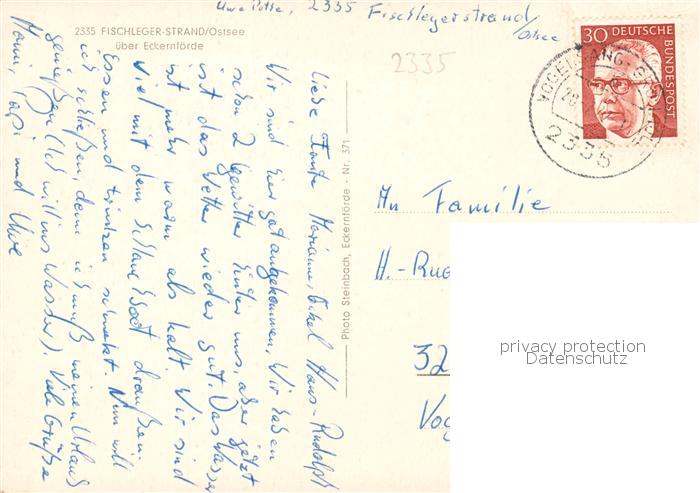 Uwe 2335 Fischlegerstrand/
Ostsee
2335 FISCHLEGER-STRAND/Ostsee
über Eckernförde
2335
30 DEUTSCHE BUNDESPOST
VOGELSANG-GRÜNHOLZ
2335
Liebe Tante Marianne, Onkel Hans-Rudolph
Wir sind hier gut angekommen. Wir haben
schon 2 Gewitter hinter uns, aber jetzt
ist das Wetter wieder gut. Das Wasser
ist mehr warm als kalt. Wir sind
viel mit dem Schlauchboot draußen.
Essen und trinken schmeckt. Nun will
ich schließen, denn ich muß meinen Urlaub
genießen (Ich will ins Wasser). Viele Grüße
Mami, Papi und Uwe
Photo Steinbach, Eckernförde · Nr. 371
An Familie
H.-Rud
32
Vog
privacy protection
Datenschutz